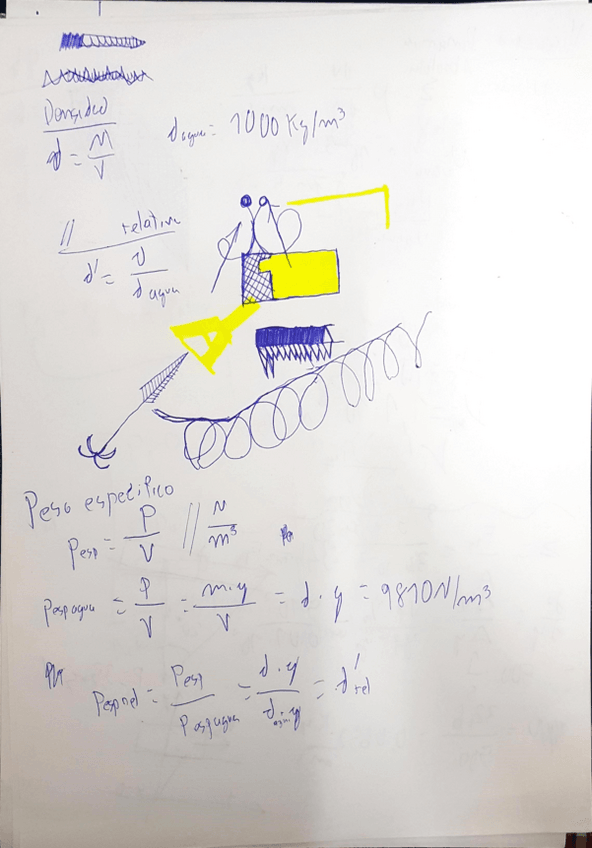 Densidad
d = M/V
d agua = 1000 Kg/m³
// relativa
d' = d/d agua
Peso especifico
P esp = P/V // N/m³
P esp agua = P/V = m.g/V = d.g = 9810 N/m³
P esp rel = P esp/P esp agua = d.g/d agua.g = d' rel